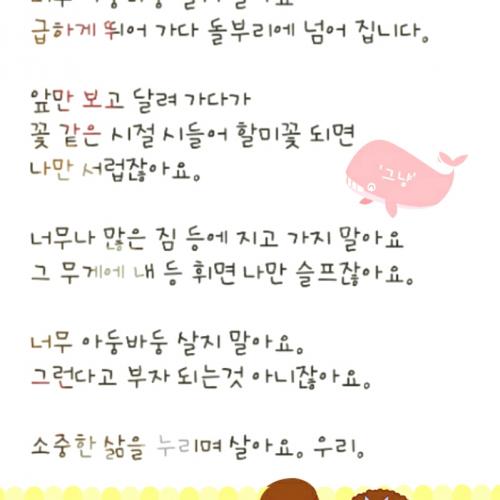 급하게 뛰어 가다 돌부리에 넘어 집니다.
앞만 보고 달려 가다가
꽃 같은 시절 시들어 할미꽃 되면
나만 서럽잖아요.
'그냥'
너무나 많은 짐 등에 지고 가지 말아요
그 무게에 내 등 휘면 나만 슬프잖아요.
너무 아둥바둥 살지 말아요.
그런다고 부자 되는것 아니잖아요.
소중한 삶을 누리며 살아요. 우리.